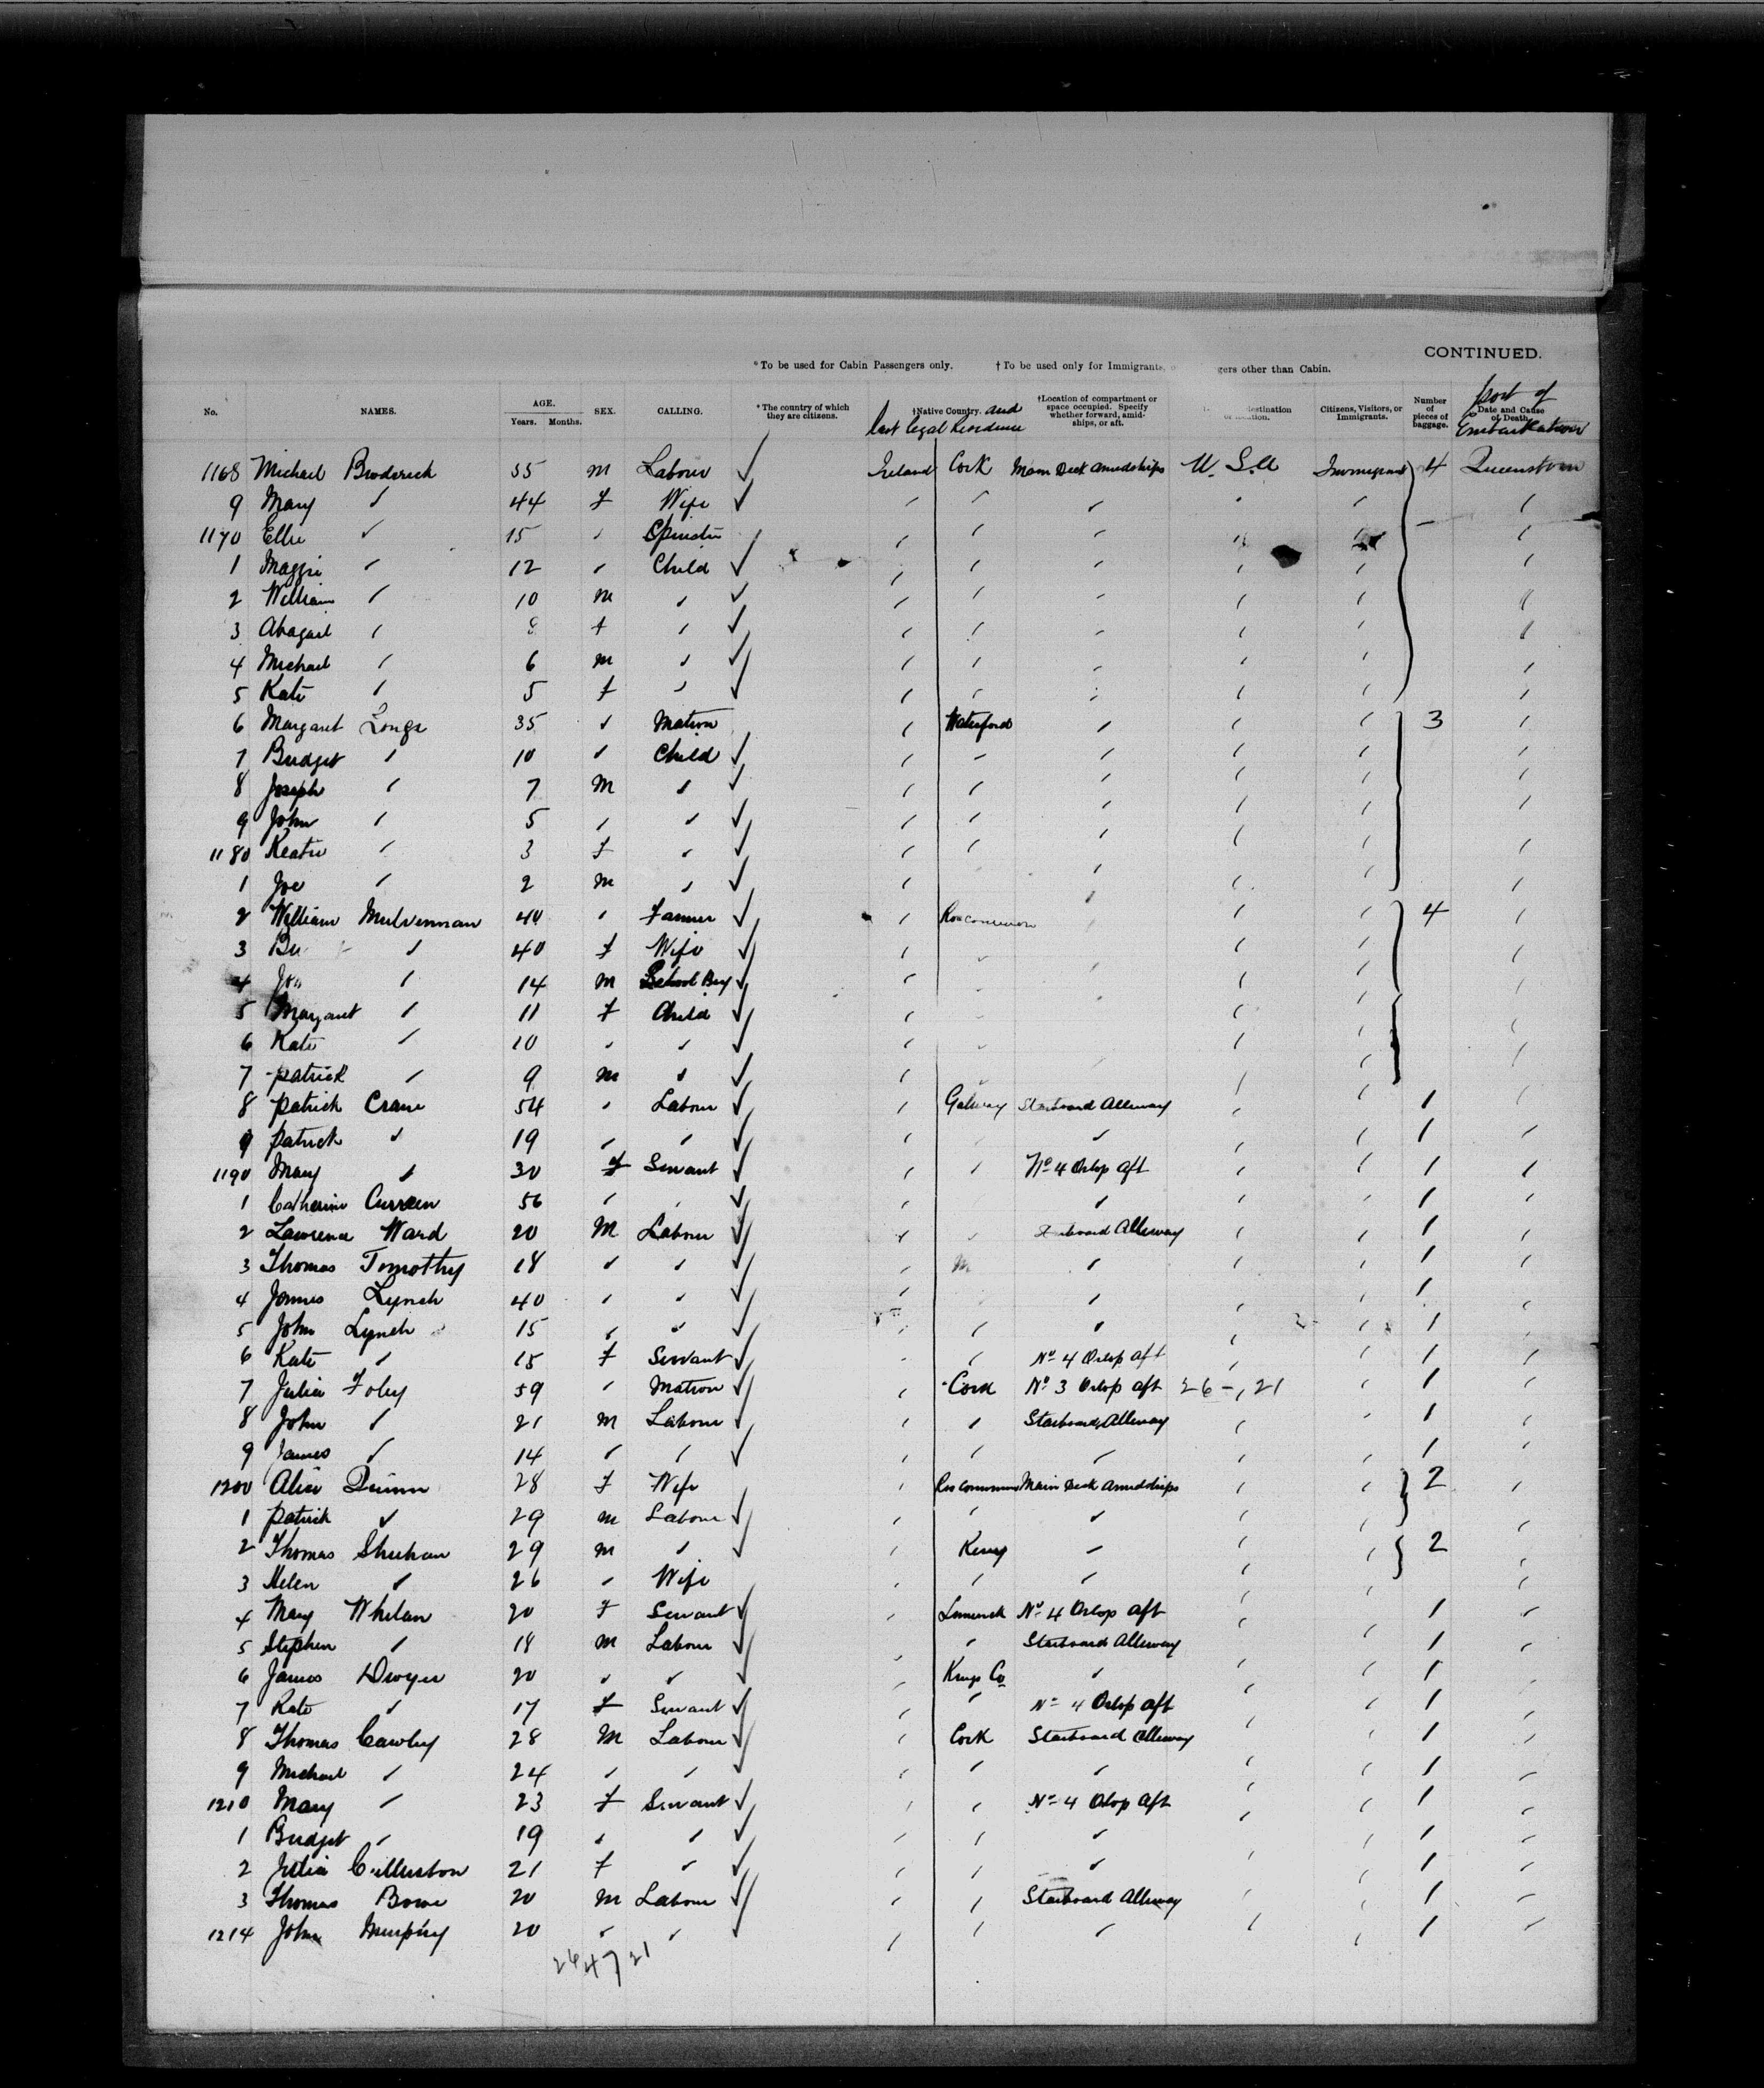 CONTINUED.
*To be used for Cabin Passengers only. †To be used only for Immigrants, gers other than Cabin.
port of
No. NAMES. AGE. Years. Months. SEX. CALLING. *The country of which they are citizens. †Native Country. and last legal Residence †Location of compartment or space occupied. Specify whether forward, amidships, or aft. destination Citizens, Visitors, or Immigrants. Number of pieces of baggage. Date and Cause of Death. Embarkation
1168 Michael Broderick 55 m Labour ✓ Ireland Cork Main Deck Amidships U.S.a Immigrant 4 Queenstown
9 Mary " 44 f Wife ✓ " " " " " "
1170 Ellie " 15 " Spinster " " " " "
1 Maggie " 12 " Child ✓ " " " " " "
2 William " 10 m " ✓ " " " " " "
3 Abagail " 8 f " ✓ " " " " " "
4 Michael " 6 m " ✓ " " " " " "
5 Kate " 5 f " ✓ " " " " " "
6 Margaret Longe 35 " Matron " Waterford " " " 3 "
7 Bridget " 10 " Child ✓ " " " " " "
8 Joseph " 7 m " ✓ " " " " " "
9 John " 5 " " ✓ " " " " " "
1180 Keatie " 3 f " ✓ " " " " " "
1 Joe " 2 m " ✓ " " " " "
2 William Mulvennan 44 " Farmer ✓ " Roscommon " " " 4 "
3 " 40 f Wife ✓ " " " " "
4 " 14 m School Boy ✓ " " " " "
5 Margaret " 11 f Child ✓ " " " " "
6 Kate " 10 " " ✓ " " " " "
7 patrick " 9 m " ✓ " " " " "
8 patrick Crane 54 " Labour ✓ " Galway Starboard Alleway " " 1 "
9 patrick " 19 " " ✓ " " " " " 1 "
1190 Mary " 30 f Servant ✓ " " No 4 Orlop aft " " 1 "
1 Catherine Curreen 56 " " ✓ " " " " 1 "
2 Lawrence Ward 20 M Labour ✓ " " Alleway " " 1 "
3 Thomas Tomothy 18 " " ✓ " " " " 1 "
4 James Lynch 40 " " ✓ " " " " 1 "
5 John Lynch 15 " " ✓ " " " " 1 "
6 Kate " 15 f Servant ✓ " " No 4 Orlop aft " " 1 "
7 Julia Foley 59 " Matron ✓ " Cork No 3 Orlop aft 26-,21 " 1 "
8 John " 21 m Labour ✓ " " Starboard Alleway " " 1 "
9 James " 14 " " ✓ " " " " " 1 "
1200 Alice Quinn 28 f Wife " Roscommon Main Deck Amidships " " 2 "
1 patrick " 29 m Labour ✓ " " " " " "
2 Thomas Sheehan 29 m " ✓ " Kerry " " " 2 "
3 Helen " 26 " Wife " " " " " "
4 Mary Whelan 20 f Servant ✓ " Limerick No 4 Orlop aft " " 1 "
5 Stephen " 18 m Labour ✓ " " Starboard Alleway " " 1 "
6 James Dwyer 20 " " ✓ " Kings Co " " " 1 "
7 Kate " 17 f Servant ✓ " " No 4 Orlop aft " " 1 "
8 Thomas Cawley 28 m Labour ✓ " Cork Starboard Alleway " " 1 "
9 Michael " 24 " " ✓ " " " " " 1 "
1210 Mary " 23 f Servant ✓ " " No 4 Olop aft " " 1 "
1 Bridget " 19 " " ✓ " " " " " 1 "
2 Julia Culleston 21 f " ✓ " " " " " 1 "
3 Thomas Bowe 20 m Labour ✓ " " Starboard Alleway " " 1 "
1214 John Murphy 20 " " ✓ " " " " " 1 "
26 47 21